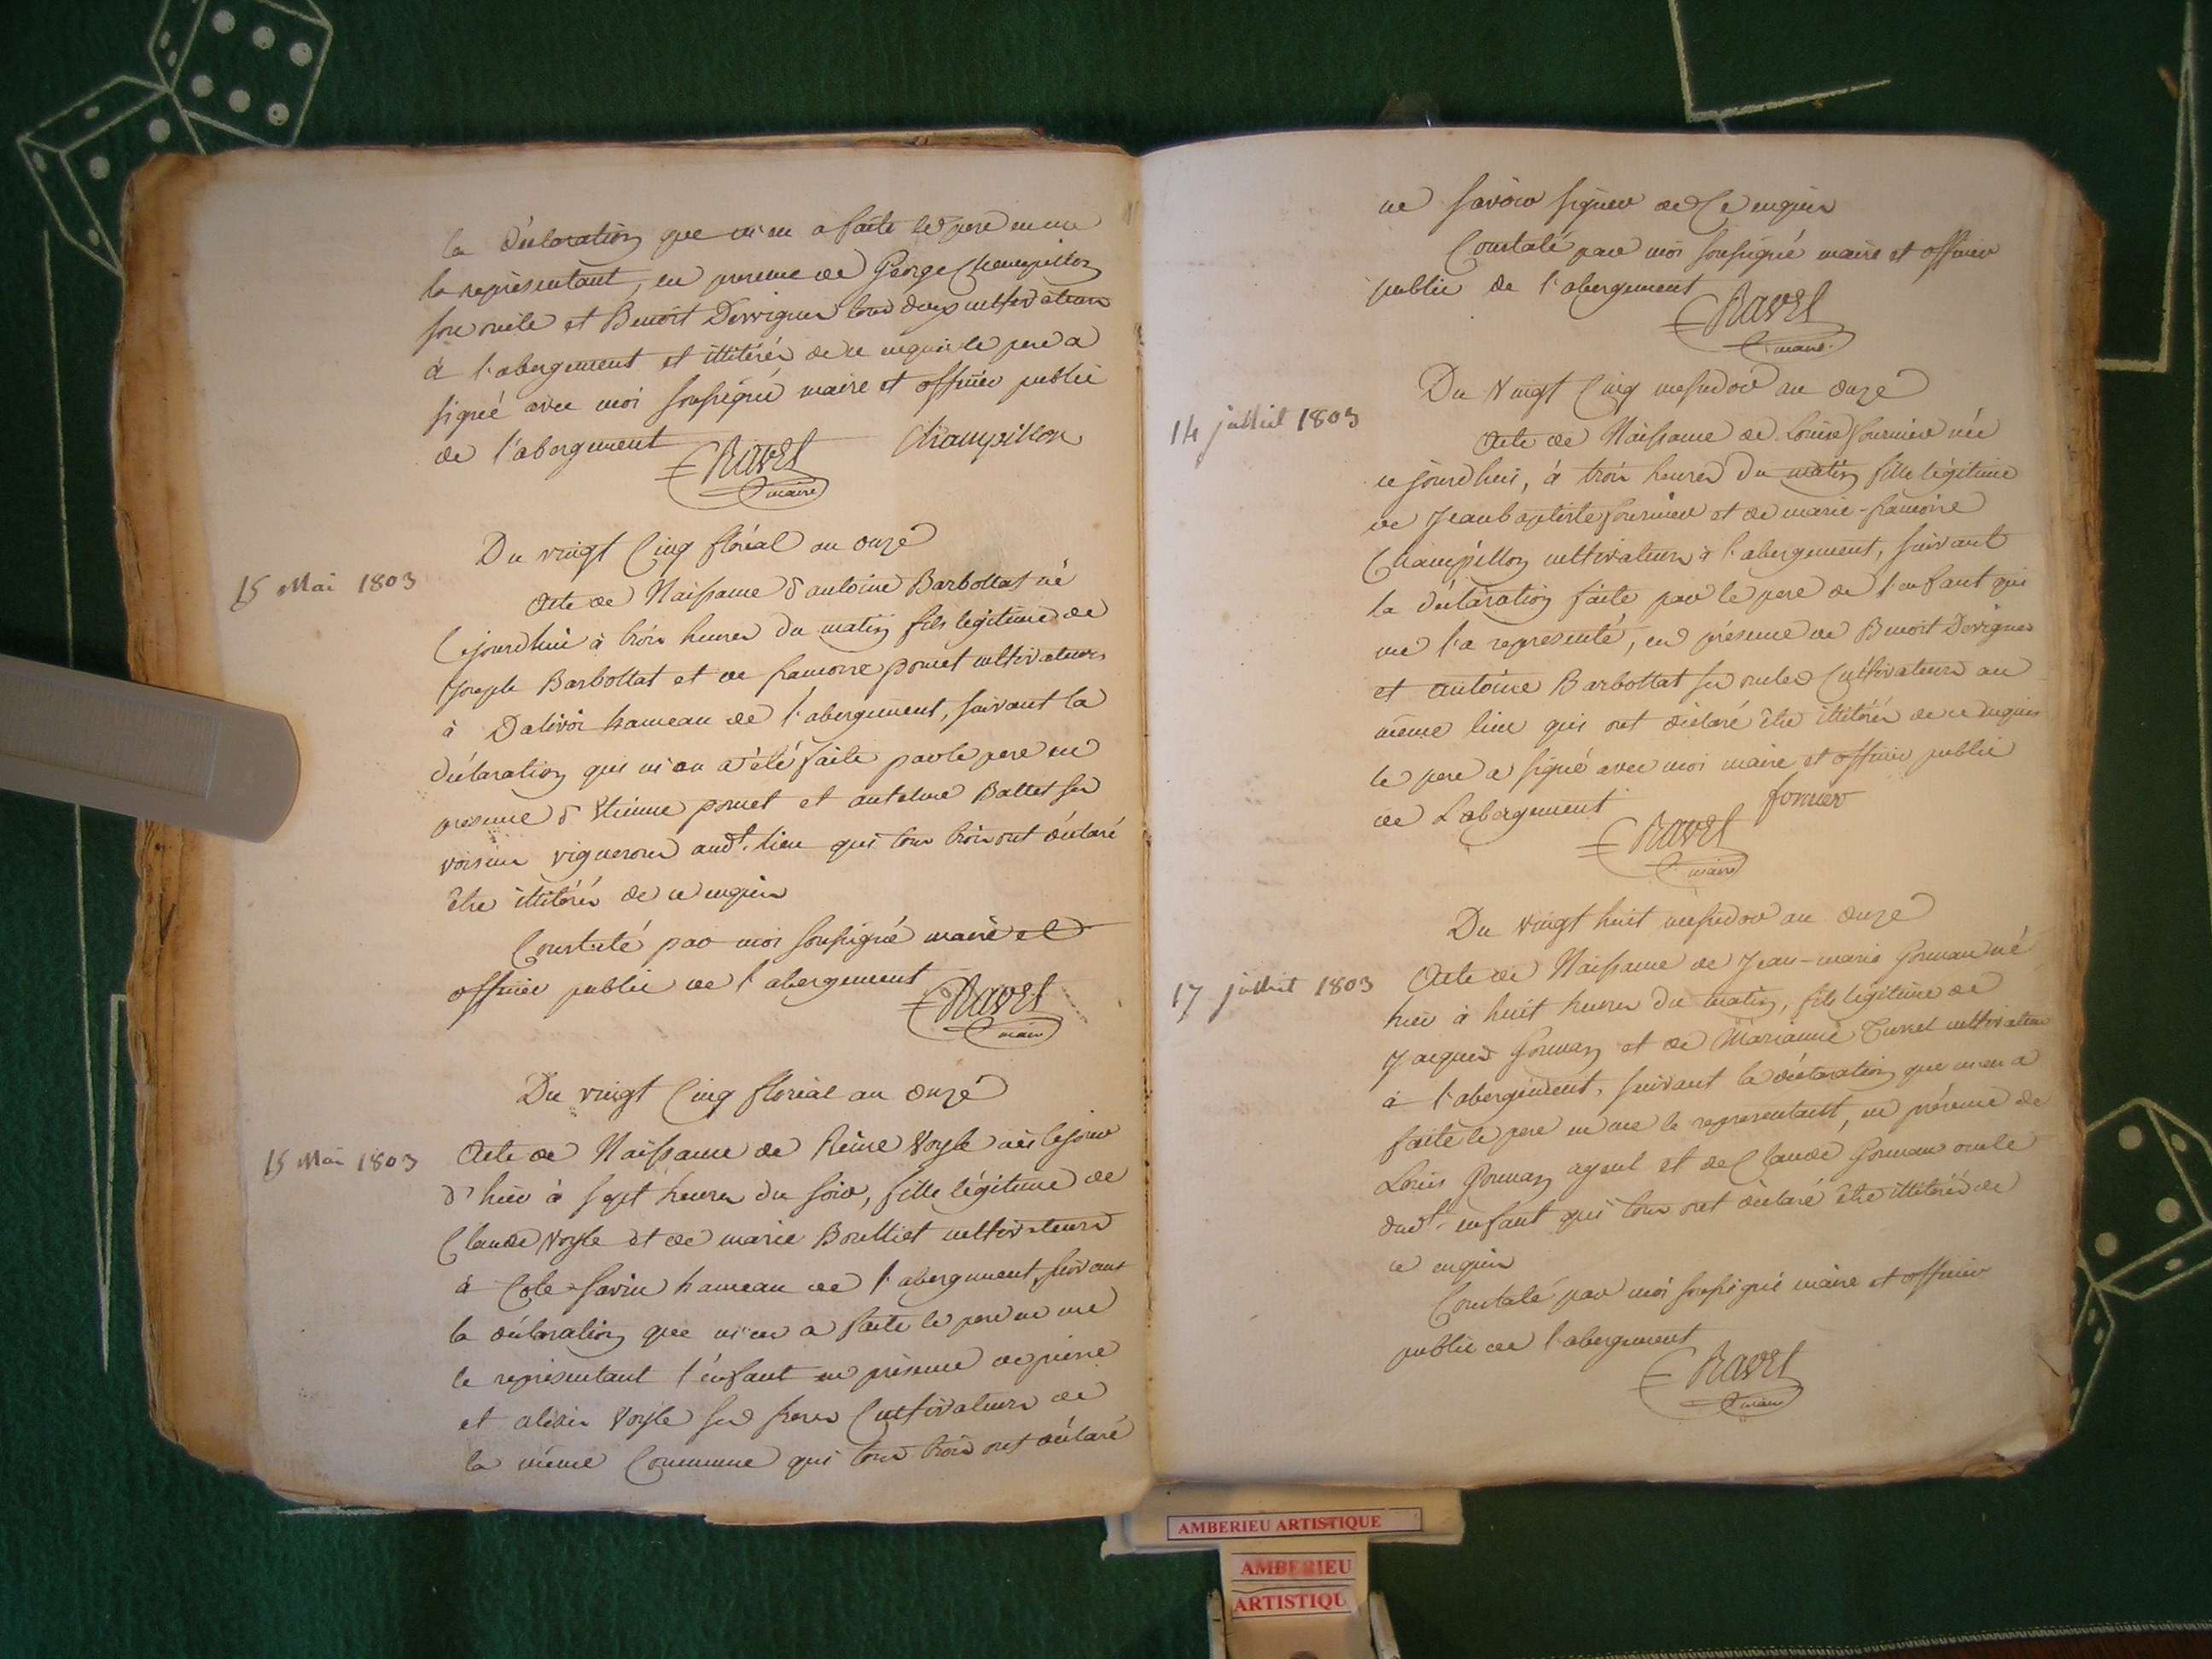 la déclaration que m'en a faite led. pere en me
le représentant, en presence de George Champillon
son oncle et Benoit Dervigner tous deux cultivateurs
à l'abergement et illitérés de ce enquis le pere a
signé avec moi soussigné maire et officier public
de l'abergement
Ravet Champillon
maire
Du vingt Cinq floréal an onze
15 Mai 1803
Acte de Naissance d'antoine Barbollat né
Cejourdhui à trois heures du matin fils légitime de
Joseph Barbollat et de francoise pomet cultivateurs
à Dalivoi hameau de l'abergement, suivant la
déclaration qui m'en a été faite par le pere en
presence d'Etienne pomet et antelme Ballet ses
voisins vignerons aud.t lieu qui tous trois ont déclaré
être illitérés de ce enquis
Constaté par moi soussigné maire et
officier public de l'abergement
Ravet
maire
Du vingt Cinq floréal an onze
15 Mai 1803
Acte de Naissance de Reine Voyle née le jour
d'hier à sept heures du soir, fille légitime de
Claude Voyle et de marie Boulliet cultivateurs
à Cote-savin hameau de l'abergement suivant
la déclaration que m'en a faite le pere en me
le représentant l'enfant en présence de pierre
et alexis Voyle ses freres Cultivateurs de
la même Commune qui tous trois ont déclaré
ne savoir signer de Ce enquis
Constaté par moi soussigné maire et officier
public de l'abergement
Ravet
maire
Du Vingt Cinq messidor an onze
14 juillet 1803
Acte de Naissance de Louise fournier née
cejourdhui, à trois heures du matin fille légitime
de Jeanbaptiste fournier et de marie-francoise
Champillon cultivateurs à l'abergement, suivant
la déclaration faite par le pere de l'enfant qui
me l'a représenté, en présence de Benoit Dervigner
et antoine Barbollat ses oncles Cultivateurs au
même lieu qui ont déclaré être illitérés de ce enquis
le pere a signé avec moi maire et officier public
de L'abergement
fornier
Ravet
maire
Du vingt huit messidor an onze
17 juillet 1803
Acte de Naissance de Jean-marie Gonnan né
hier à huit heures du matin, fils légitime de
Jacques Gonnan et de Marianne Curvel cultivateurs
à l'abergement, suivant la déclaration que m'en a
faite le pere en me le representant, en présence de
Louis Gonnan ayeul et de Claude Gonnan oncle
dud.t enfant qui tous ont déclaré être illitérés de
ce enquis
Constaté par moi soussigné maire et officier
public de l'abergement
Ravet
maire
AMBERIEU ARTISTIQUE
AMBERIEU
ARTISTIQU